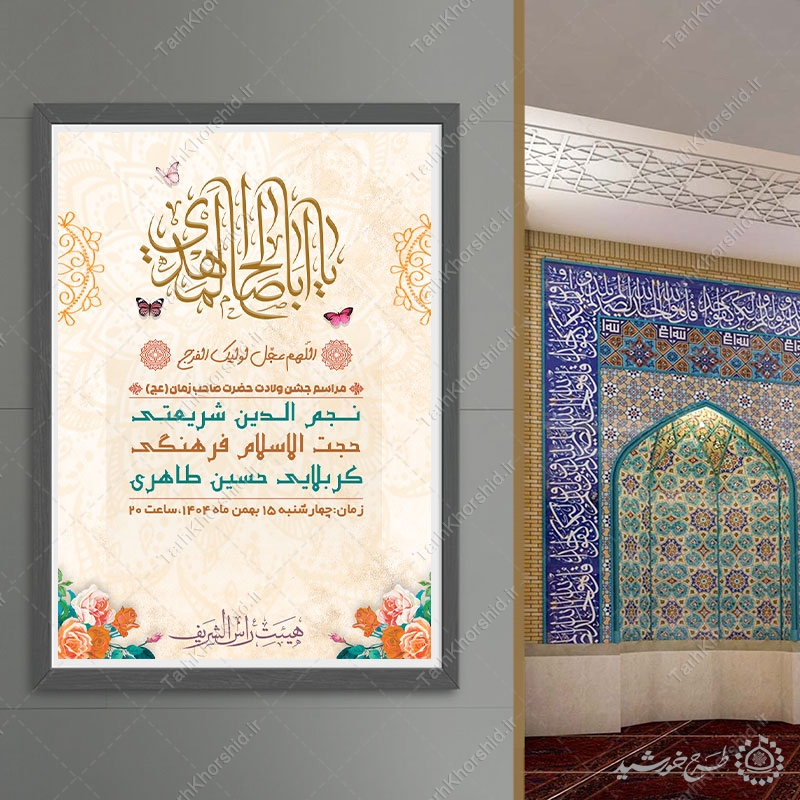 یا اباصالح المهدی
اللهم عجل لولیک الفرج
مراسم جشن ولادت حضرت صاحب زمان (عج)
نجم الدین شریعتی
حجت الاسلام فرهنگی
کربلایی حسین طاهری
زمان: چهارشنبه ۱۵ بهمن ماه ۱۴۰۴، ساعت ۲۰
هیئت راس الشریف
طرح خورشید
TarhKhorshid.ir